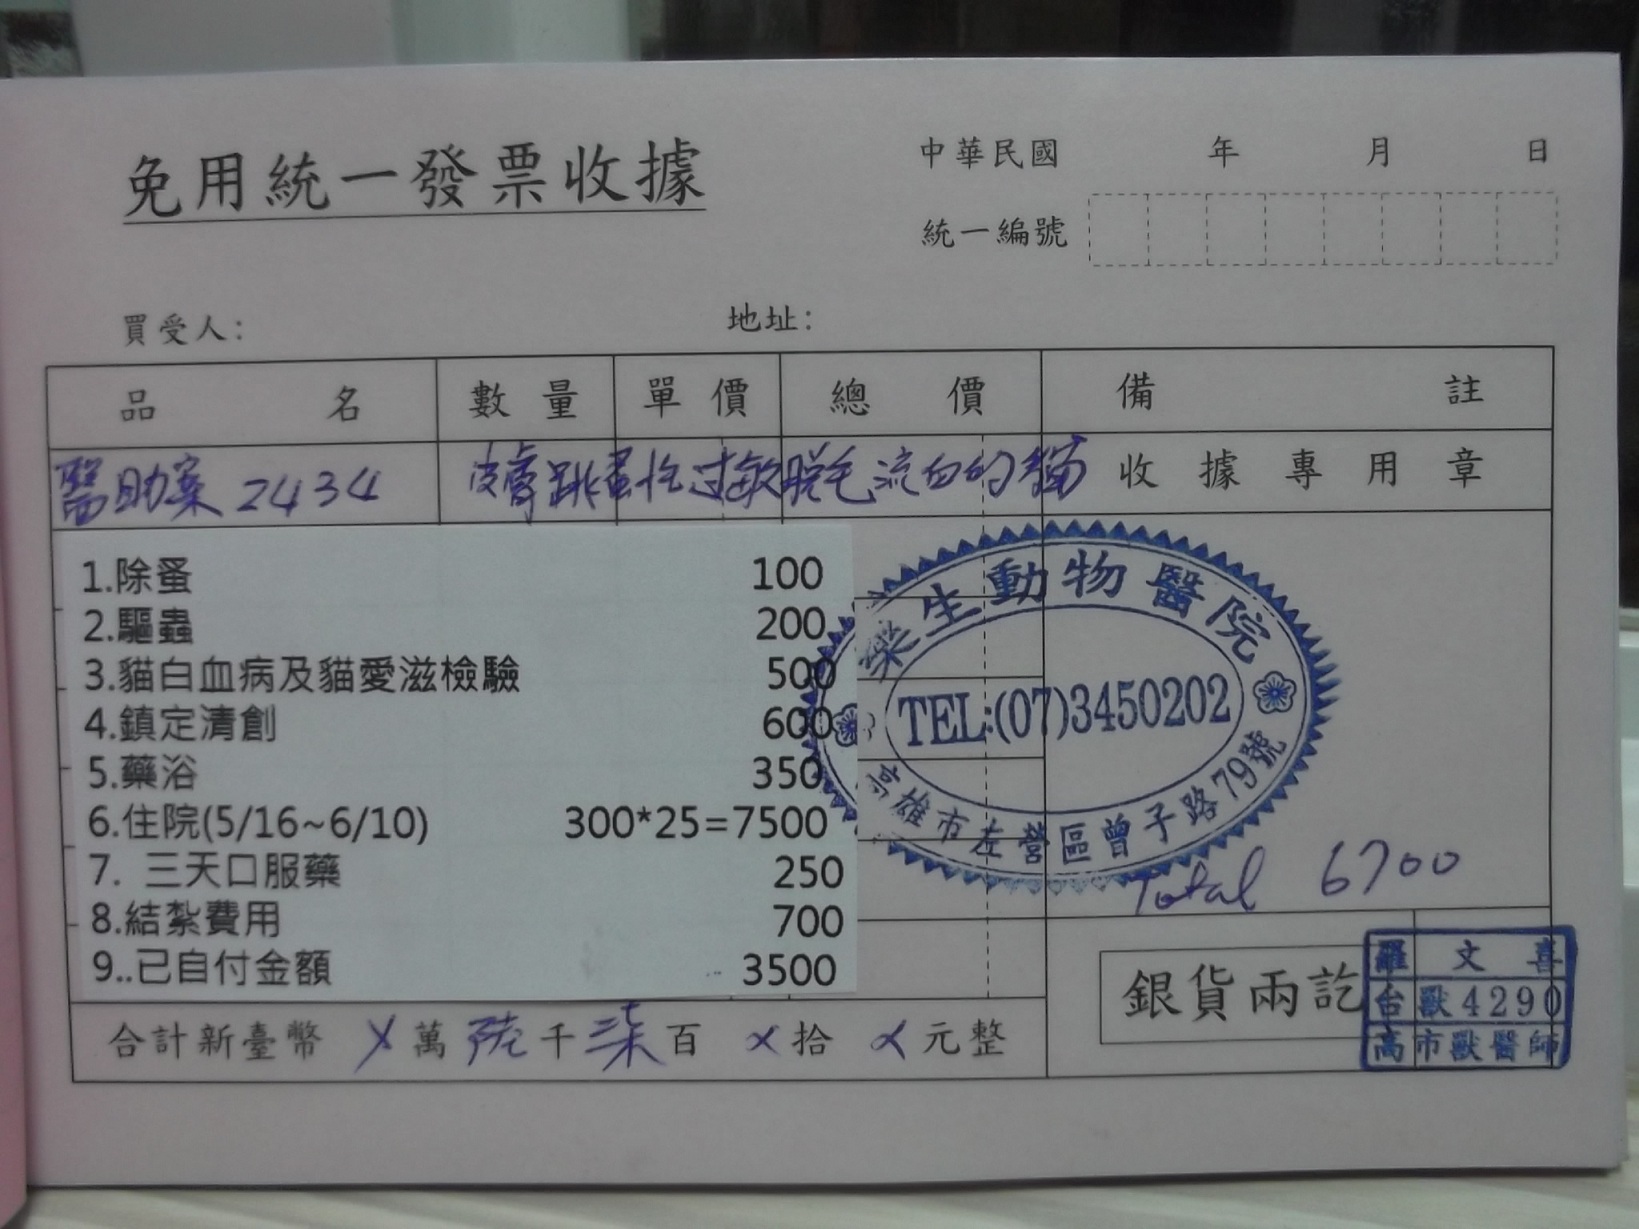 免用統一發票收據
中華民國 年 月 日
統一編號
買受人：
地址：
品名 數量 單價 總價 備註
醫助案2434 皮膚跳蚤性过敏脱毛流血的猫 收據專用章
1.除蚤 100
2.驅蟲 200
3.貓白血病及貓愛滋檢驗 500
4.鎮定清創 600
5.藥浴 350
6.住院(5/16~6/10) 300*25=7500
7. 三天口服藥 250
8.結紮費用 700
9..已自付金額 3500
樂生動物醫院
TEL:(07)3450202
高雄市左營區曾子路79號
Total 6700
合計新臺幣 ㄨ萬陸千柒百ㄨ拾ㄨ元整
銀貨兩訖
羅文喜
台獸4290
高市獸醫師